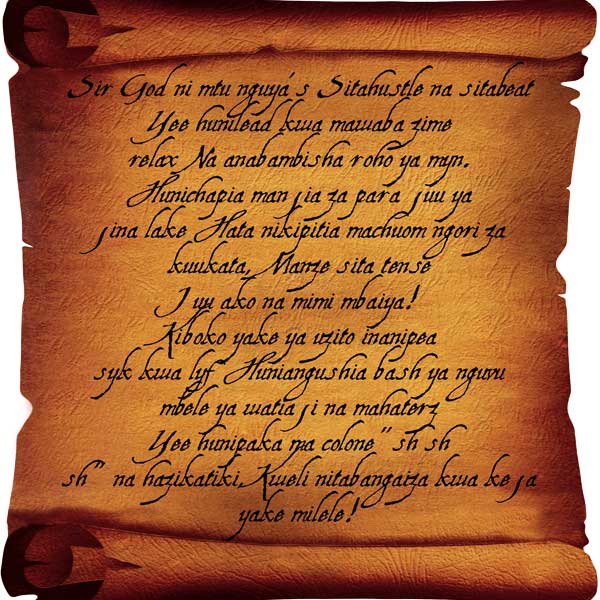 Sir God ni mtu nguyá s Sitahustle na sitabeat
Yee hunilead kwa mawaba zime
relax Na anabambisha roho ya myn.
Hunichapia man jia za para juu ya
jina lake Hata nikipitia machuom ngori za
kuukata, Manze sita tense
Juu ako na mimi mbaiya!
Kiboko yake ya uzito inanipea
syk kwa lyf Huniangushia bash ya nguvu
mbele ya watia ji na mahaterz
Yee hunipaka ma colone "sh sh
sh" na hazikatiki, Kweli nitabangaiza kwa ke ja
yake milele!